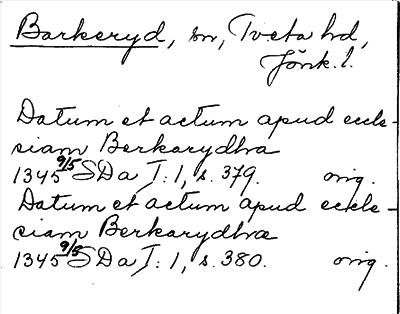 Barkeryd, sn, Tveta hd,
Jönk. l.
Datum et actum apud eccle-
siam Berkarydhra
1345 9/5 SDa I: 1, s. 379. orig.
Datum et actum apud eccle-
ciam Berkarydhræ
1345 9/5 SDa I: 1, s. 380. orig.